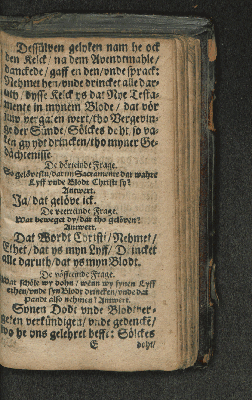 Dessülven geliken nam he ock
den Kelck / na dem Avendtmahle /
danckede / gaff en den / unde sprack:
Nehmet hen / unde drincket alle dar-
uth / dysse Kelck ys dat Nye Testa-
mente in mynem Blode / dat vör
juw vergaten wert / tho Vergevin-
ge der Sünde / Sölckes doht so va-
ken gy ydt drincken / tho myner Ge-
dächtenisse.
De dörteinde Frage.
So gelövestu / dat im Sacramente dat wahre
Lyff unde Blodt Christi sy?
Antwort.
Ja / dat gelöve ick.
De veerteinde Frage.
Wat beweget dy / dat tho gelöven?
Antwort.
Dat Wordt Christi / Nehmet /
Ethet / dat ys myn Lyff / Drincket
alle daruth / dat ys myn Blodt.
De vöffteinde Frage.
Wat schöle wy dohn / wenn wy synen Lyff
ethen / unde syn Blodt drincken / unde dat
Pandt also nehmen? Antwort.
Synen Dodt unde Blodtver-
geten verkündigen / unde gedencken /
wo he uns gelehret hefft: Sölckes
E doht /